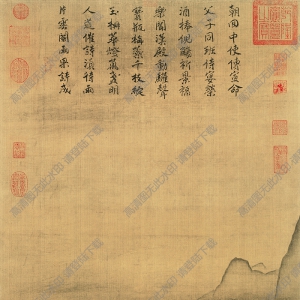 朝回中使傳宣命
父子同班侍宴榮
酒捧倪觴祈景福
樂聞漢殿動驩聲
寶瓶梅蘂千枝綻
玉栅華燈萬盞明
人道催詩須待雨
片雲閣雨果詩成